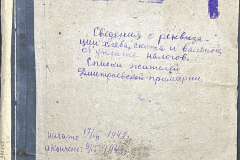 Сведения о реквиза-
ции хлеба, скота и
об уплате налогов.
Списки жителей
Дмитриевской примарии.
начато 17/
окончено: